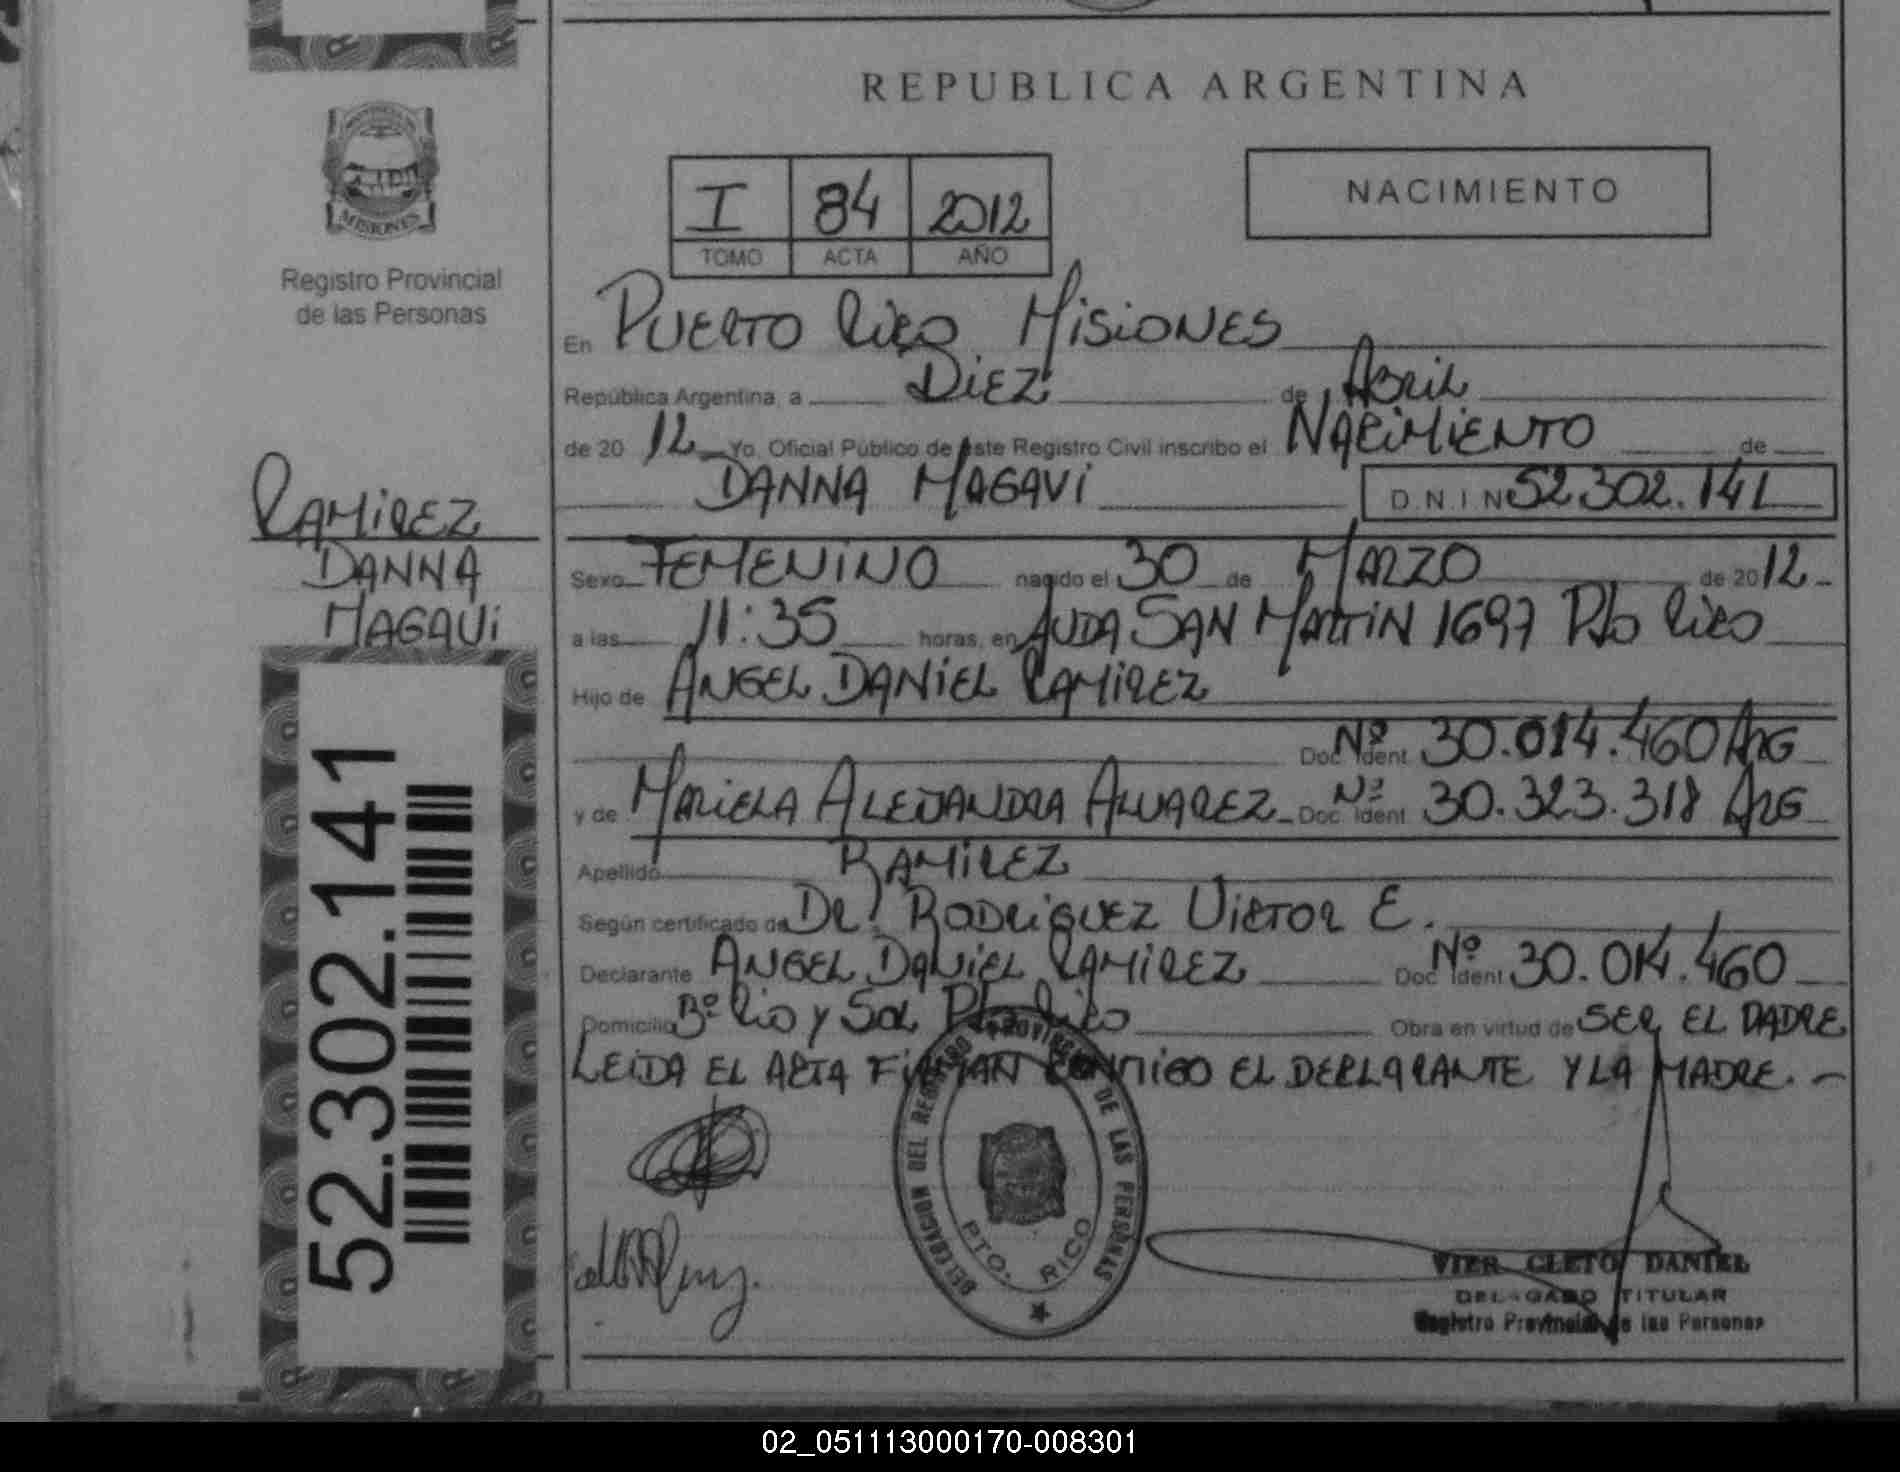 REPUBLICA ARGENTINA
NACIMIENTO
I 84 2012
TOMO ACTA AÑO
MISIONES
Registro Provincial
de las Personas
En PUERTO RICO MISIONES
República Argentina, a DIEZ de ABRIL
de 20 12 Yo, Oficial Público de este Registro Civil inscribo el NACIMIENTO de
DANNA MAGAVI D.N.I N 52 302.141
RAMIREZ
DANNA
MAGAVI
Sexo FEMENINO nacido el 30 de MARZO de 20 12
a las 11:35 horas, en AVDA SAN MARTIN 1697 Pto RICO
Hijo de ANGEL DANIEL RAMIREZ
Doc. Ident Nº 30.014.460 ARG
y de MARIELA ALEJANDRA ALVAREZ Doc. Ident Nº 30.323.318 ARG
Apellido RAMIREZ
Según certificado de DR. RODRIGUEZ VICTOR E.
Declarante ANGEL DANIEL RAMIREZ Doc. Ident Nº 30.014.460
Domicilio Bº RIO Y SOL Pto RICO Obra en virtud de SER EL PADRE
LEIDA EL ACTA FIRMAN CONMIGO EL DECLARANTE Y LA MADRE. -
52.302.141
DELEGACION DEL REGISTRO PROVINCIAL DE LAS PERSONAS
PTO. RICO
VIER CLETO DANIEL
DELEGADO TITULAR
Registro Provincial de las Personas
02_051113000170-008301